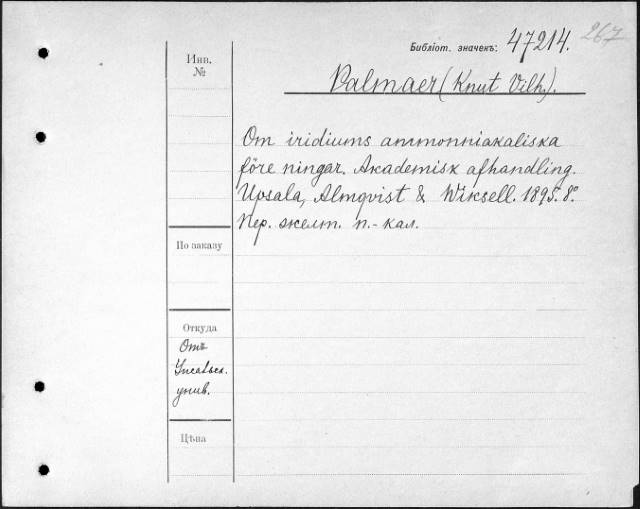 Библіот. значекъ: 47214. 267
Инв.
№
Palmaer (Knut Vilh.).
Om iridiums ammonniakaliska
före ningar. Akademisk afhandling.
Upsala, Almqvist & Wiksell. 1895. 8º.
Пер. желт. п.-кал.
По заказу
Откуда
Отъ
Упсальск.
унив.
Цѣна